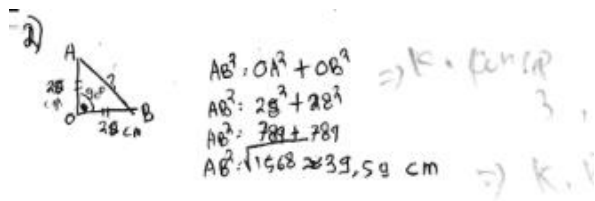 2)
A
28 cm
90°
O
28 cm
B
AB²: OA² + OB²
AB²: 28² + 28²
AB²: 784 + 784
AB²: √1568 ≈ 39,59 cm
⇒ K.
3
⇒ K.